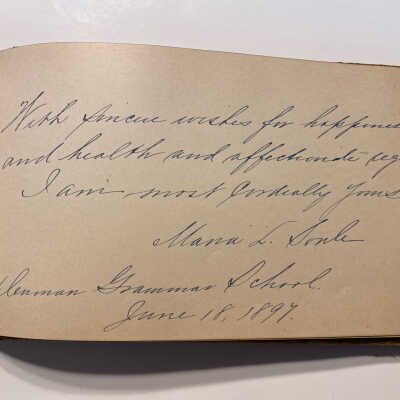 With sincere wishes for happines
and health and affectionate reg
I am most Cordially Yours
Maria L. Soule
Denman Grammar School.
June 18, 1897.